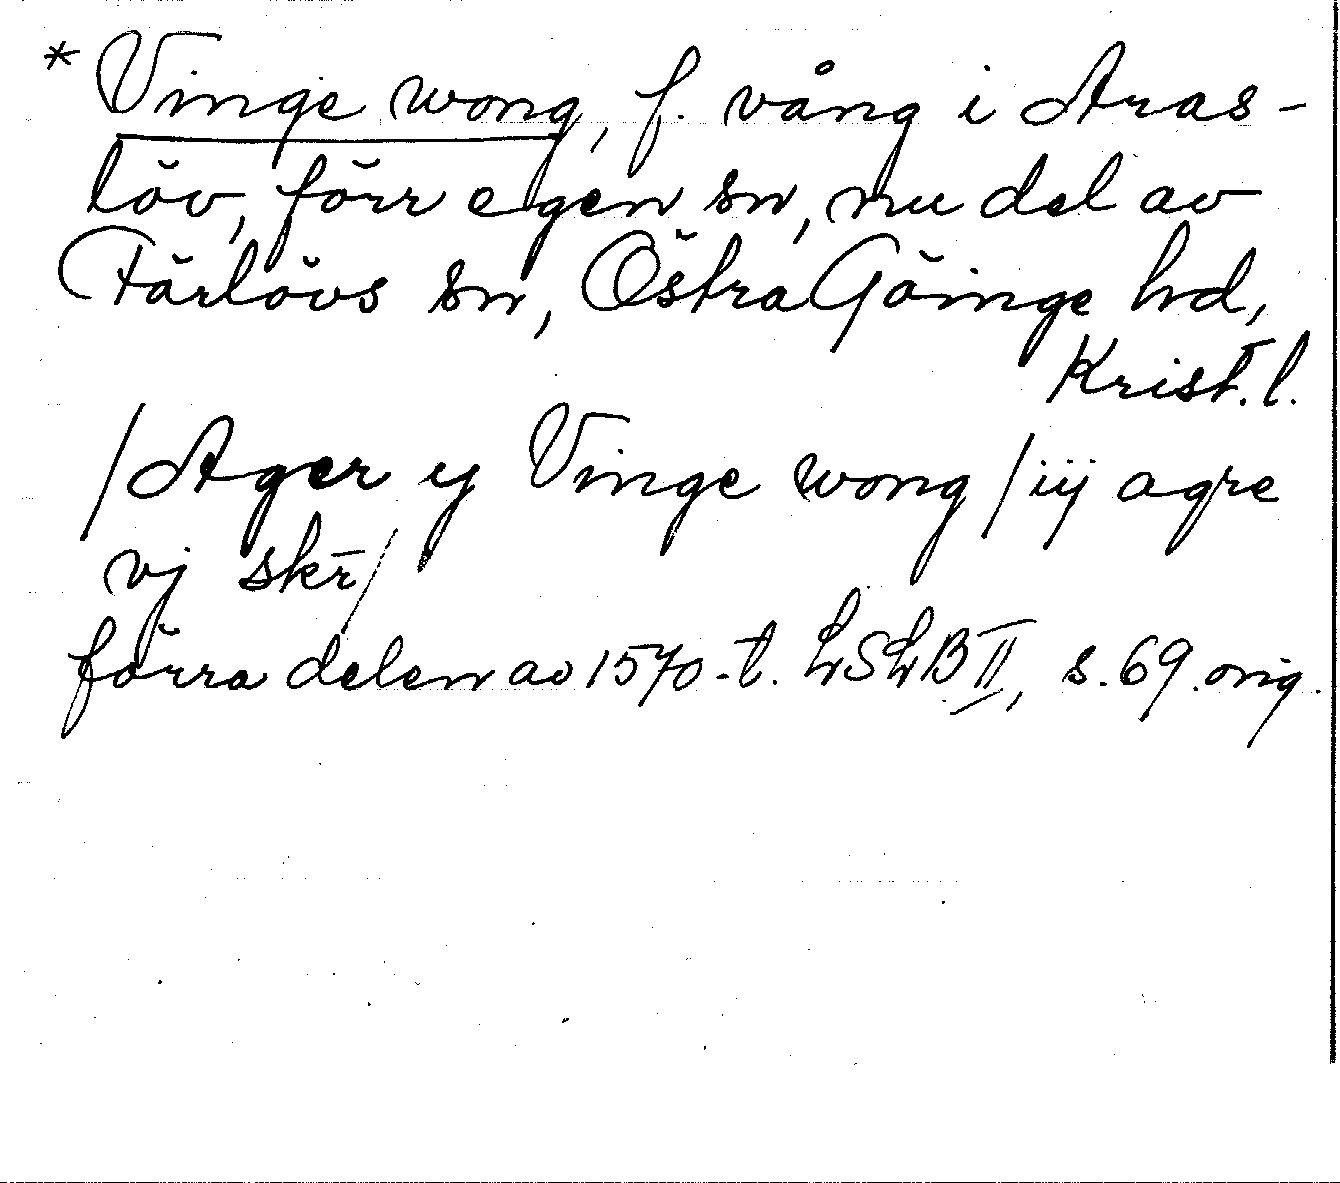 * Vinge wong, f. vång i Aras-
löv, förr egen sn, nu del av
Färlövs sn, Östra Göinge hd,
Krist. l.
/Ager ij Vinge wong/iij agre
vj skr̄/
förra delen av 1570-t. LSLB II, s. 69. orig.